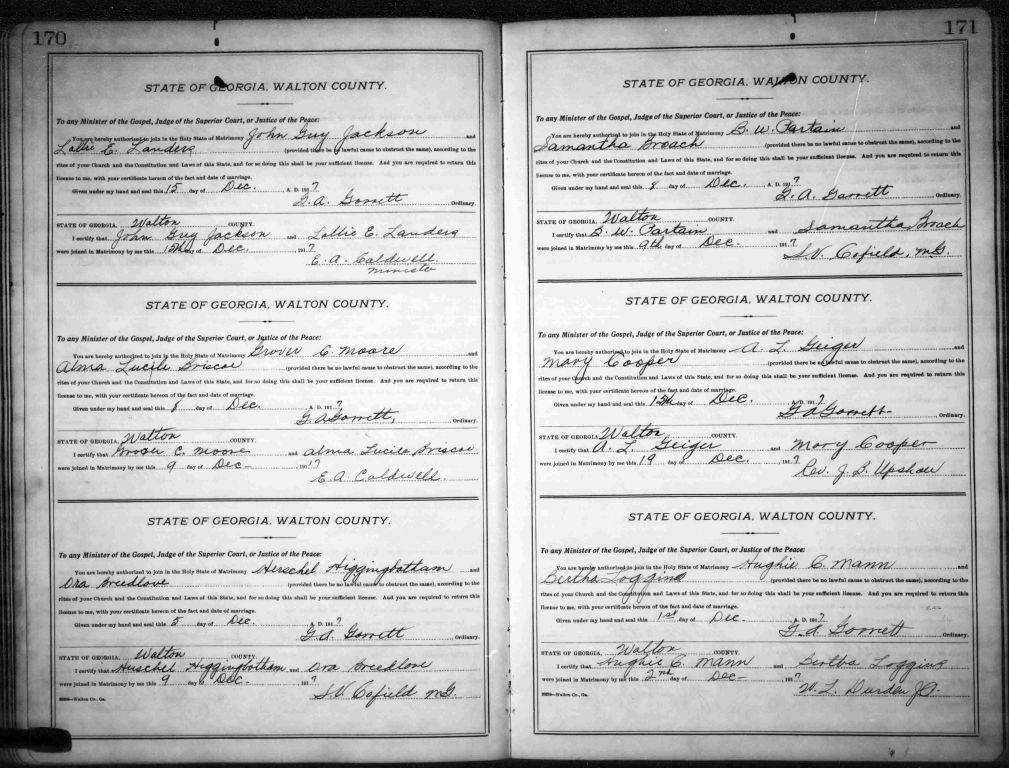 170
STATE OF GEORGIA, WALTON COUNTY.
To any Minister of the Gospel, Judge of the Superior Court, or Justice of the Peace:
You are hereby authorized to join in the Holy State of Matrimony John Guy Jackson and
Lollie E. Landers (provided there be no lawful cause to obstruct the same), according to the
rites of your Church and the Constitution and Laws of this State, and for so doing this shall be your sufficient license. And you are required to return this
license to me, with your certificate hereon of the fact and date of marriage.
Given under my hand and seal this 15 day of Dec. A. D. 1917
G. A. Garrett Ordinary.
STATE OF GEORGIA, Walton COUNTY.
I certify that John Guy Jackson and Lollie E. Landers
were joined in Matrimony by me this 15th day of Dec. 1917
E. A. Caldwell
Minister
STATE OF GEORGIA, WALTON COUNTY.
To any Minister of the Gospel, Judge of the Superior Court, or Justice of the Peace:
You are hereby authorized to join in the Holy State of Matrimony Grover C. Moore and
Alma Lucile Briscoe (provided there be no lawful cause to obstruct the same), according to the
rites of your Church and the Constitution and Laws of this State, and for so doing this shall be your sufficient license. And you are required to return this
license to me, with your certificate hereon of the fact and date of marriage.
Given under my hand and seal this 8 day of Dec. A. D. 1917
G. A. Garrett, Ordinary.
STATE OF GEORGIA, Walton COUNTY.
I certify that Grover C. Moore and Alma Lucile Briscoe
were joined in Matrimony by me this 9 day of Dec- 1917
E. A. Caldwell.
STATE OF GEORGIA, WALTON COUNTY.
To any Minister of the Gospel, Judge of the Superior Court, or Justice of the Peace:
You are hereby authorized to join in the Holy State of Matrimony Herschel Higginbotham and
Ora Breedlove (provided there be no lawful cause to obstruct the same), according to the
rites of your Church and the Constitution and Laws of this State, and for so doing this shall be your sufficient license. And you are required to return this
license to me, with your certificate hereon of the fact and date of marriage.
Given under my hand and seal this 5 day of Dec. A. D. 1917
G. A. Garrett Ordinary.
STATE OF GEORGIA, Walton COUNTY.
I certify that Herschel Higginbotham and Ora Breedlove
were joined in Matrimony by me this 9 day of Dec- 1917
S. V. Cofield MG.
Walton Co. Ga.
171
STATE OF GEORGIA, WALTON COUNTY.
To any Minister of the Gospel, Judge of the Superior Court, or Justice of the Peace:
You are hereby authorized to join in the Holy State of Matrimony B. W. Partain and
Samantha Broach (provided there be no lawful cause to obstruct the same), according to the
rites of your Church and the Constitution and Laws of this State, and for so doing this shall be your sufficient license. And you are required to return this
license to me, with your certificate hereon of the fact and date of marriage.
Given under my hand and seal this 8 day of Dec. A. D. 1917
G. A. Garrett Ordinary.
STATE OF GEORGIA, Walton COUNTY.
I certify that B. W. Partain and Samantha Broach
were joined in Matrimony by me this 9th day of Dec. 1917
S. V. Cofield, MG.
STATE OF GEORGIA, WALTON COUNTY.
To any Minister of the Gospel, Judge of the Superior Court, or Justice of the Peace:
You are hereby authorized to join in the Holy State of Matrimony A. L. Geiger and
Mary Cooper (provided there be no lawful cause to obstruct the same), according to the
rites of your Church and the Constitution and Laws of this State, and for so doing this shall be your sufficient license. And you are required to return this
license to me, with your certificate hereon of the fact and date of marriage.
Given under my hand and seal this 15th day of Dec. A. D. 1917
G. A. Garrett Ordinary.
STATE OF GEORGIA, Walton COUNTY.
I certify that A. L. Geiger and Mary Cooper
were joined in Matrimony by me this 19 day of Dec. 1917
Rev. J. B. Upshaw
STATE OF GEORGIA, WALTON COUNTY.
To any Minister of the Gospel, Judge of the Superior Court, or Justice of the Peace:
You are hereby authorized to join in the Holy State of Matrimony Hughie C. Mann and
Bertha Loggins (provided there be no lawful cause to obstruct the same), according to the
rites of your Church and the Constitution and Laws of this State, and for so doing this shall be your sufficient license. And you are required to return this
license to me, with your certificate hereon of the fact and date of marriage.
Given under my hand and seal this 1st day of Dec. A. D. 1917
G. A. Garrett Ordinary.
STATE OF GEORGIA, Walton COUNTY.
I certify that Hughie C. Mann and Bertha Loggins
were joined in Matrimony by me this 2nd day of Dec- 1917
W. L. Durden JP.
Walton Co. Ga.